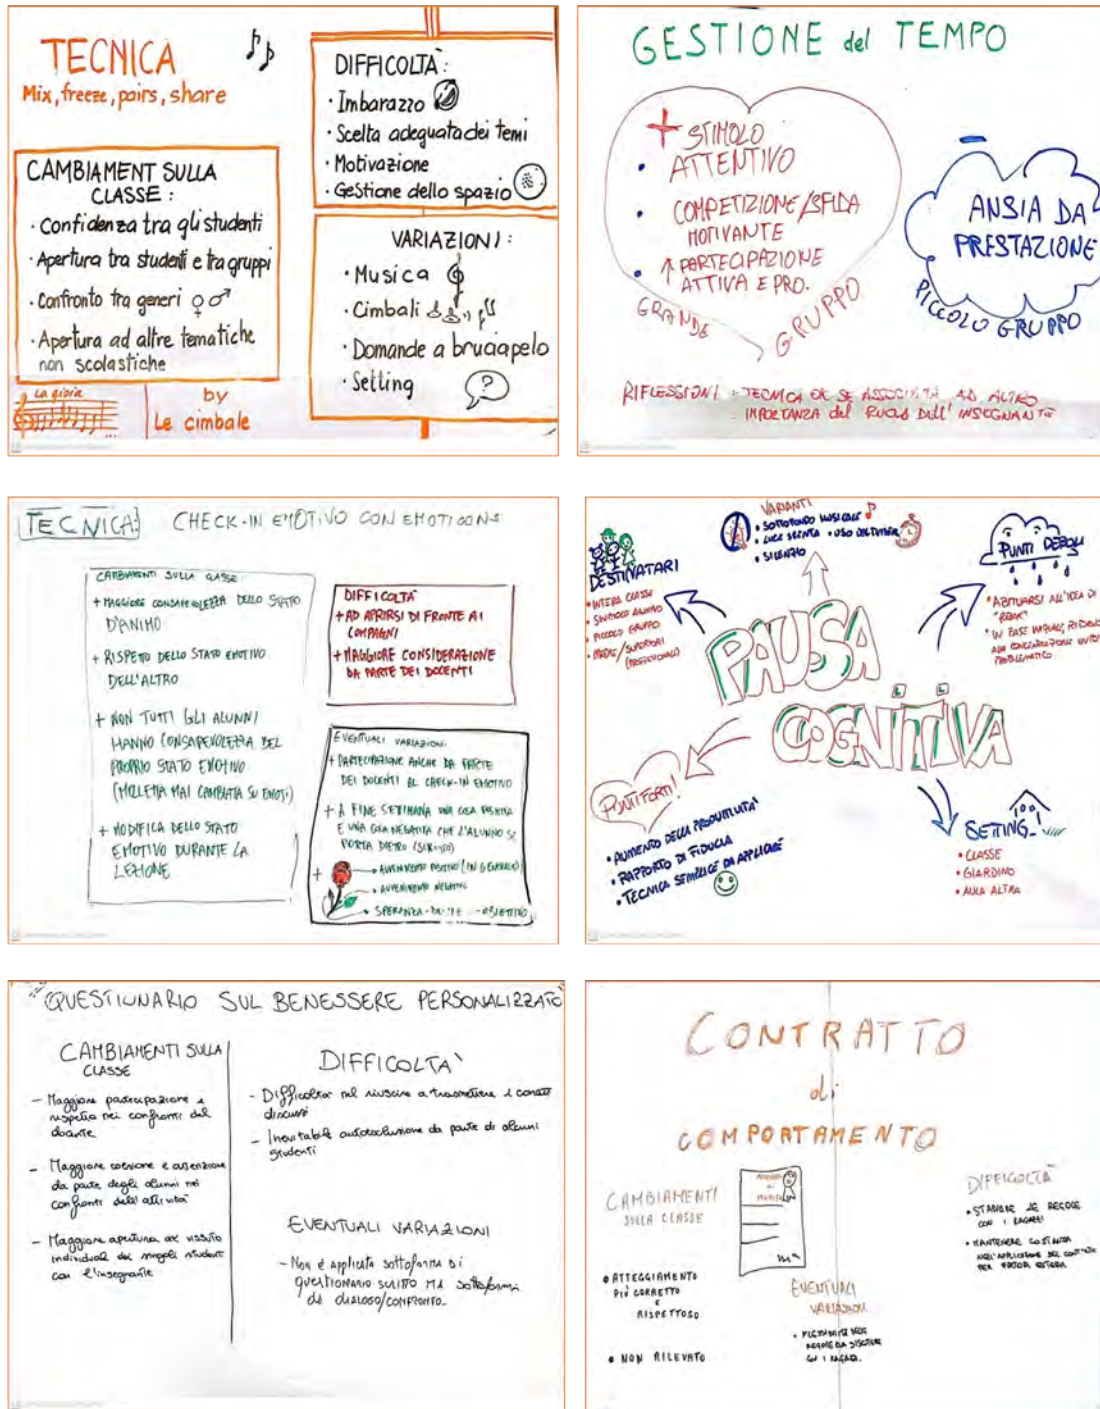 TECNICA
Mix, freeze, pairs, share
CAMBIAMENT SULLA
CLASSE :
· Confidenza tra gli studenti
· Apertura tra studenti e tra gruppi
· Confronto tra generi ♀ ♂
· Apertura ad altre tematiche
non scolastiche
La gioia
by
Le cimbale
DIFFICOLTÀ :
· Imbarazzo
· Scelta adeguata dei temi
· Motivazione
· Gestione dello spazio
VARIAZIONI :
· Musica
· Cimbali
· Domande a bruciapelo
· Setting
?
GESTIONE del TEMPO
+ STIMOLO
• ATTENTIVO
• COMPETIZIONE/SFIDA
MOTIVANTE
• ↑ PARTECIPAZIONE
ATTIVA E PRO.
GRANDE GRUPPO
-
ANSIA DA
PRESTAZIONE
PICCOLO GRUPPO
RIFLESSIONI - TECNICA OK SE ASSOCIATA AD ALTRO
- IMPORTANZA del RUOLO DELL'INSEGNANTE
TECNICA: CHECK-IN EMOTIVO CON EMOTICONS
CAMBIAMENTI SULLA CLASSE:
+ MAGGIORE CONSAPEVOLEZZA DELLO STATO
D'ANIMO
+ RISPETTO DELLO STATO EMOTIVO
DELL'ALTRO
+ NON TUTTI GLI ALUNNI
HANNO CONSAPEVOLEZZA DEL
PROPRIO STATO EMOTIVO
(MOLLETTA MAI CAMBIATA SU EMOJI)
+ MODIFICA DELLO STATO
EMOTIVO DURANTE LA
LEZIONE
DIFFICOLTÀ
+ AD APRIRSI DI FRONTE AI
COMPAGNI
+ MAGGIORE CONSIDERAZIONE
DA PARTE DEI DOCENTI
EVENTUALI VARIAZIONI:
+ PARTECIPAZIONE ANCHE DA PARTE
DEI DOCENTI AL CHECK-IN EMOTIVO
+ A FINE SETTIMANA UNA COSA POSITIVA
E UNA COSA NEGATIVA CHE L'ALUNNO SI
PORTA DIETRO (SCRITTO)
+ AVVENIMENTO POSITIVO (IN GENERALE)
AVVENIMENTO NEGATIVO
SPERANZA - OBIETTIVO
VARIANTI
• SOTTOFONDO MUSICALE
• LUCE SPENTA • USO DEL TIMER
• SILENZIO
DESTINATARI
• INTERA CLASSE
• SINGOLO ALUNNO
• PICCOLO GRUPPO
PUNTI DEBOLI
• ABITUARSI ALL'IDEA DI
"RELAX"
PROBLEMATICO
PAUSA
COGNITIVA
PUNTI FORTI!
• AUMENTO DELLA PRODUTTIVITA'
• RAPPORTO DI FIDUCIA
• TECNICA SEMPLICE DA APPLICARE
SETTING
• CLASSE
• GIARDINO
• AULA ALTRA
QUESTIONARIO SUL BENESSERE PERSONALIZZATO
CAMBIAMENTI SULLA
CLASSE
- Maggiore partecipazione e
rispetto nei confronti del
docente
- Maggiore coesione e attenzione
da parte degli alunni nei
confronti dell'attività
- Maggiore apertura al vissuto
individuale dei singoli studenti
con l'insegnante
DIFFICOLTA'
- Difficoltà nel riuscire a trasmettere i concetti
discussi
- Inevitabile autoesclusione da parte di alcuni
studenti
EVENTUALI VARIAZIONI
- Non è applicata sottoforma di
questionario scritto ma sottoforma
di dialogo/confronto.
CONTRATTO
di
COMPORTAMENTO
CAMBIAMENTI
SULLA CLASSE
• ATTEGGIAMENTO
PIÙ CORRETTO
E
RISPETTOSO
• NON RILEVATO
EVENTUALI
VARIAZIONI
DIFFICOLTÀ
• STABILIRE LE REGOLE
CON I RAGAZZI
• MANTENERE COSTANZA
PER FATTORI ESTERNI